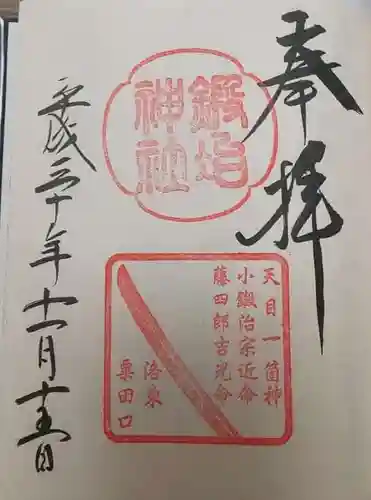 奉拝
鍛冶
神社
天目一箇神
小鍛治宗近命
藤四郎吉光命
洛東
粟田口
平成三十年十一月十五日